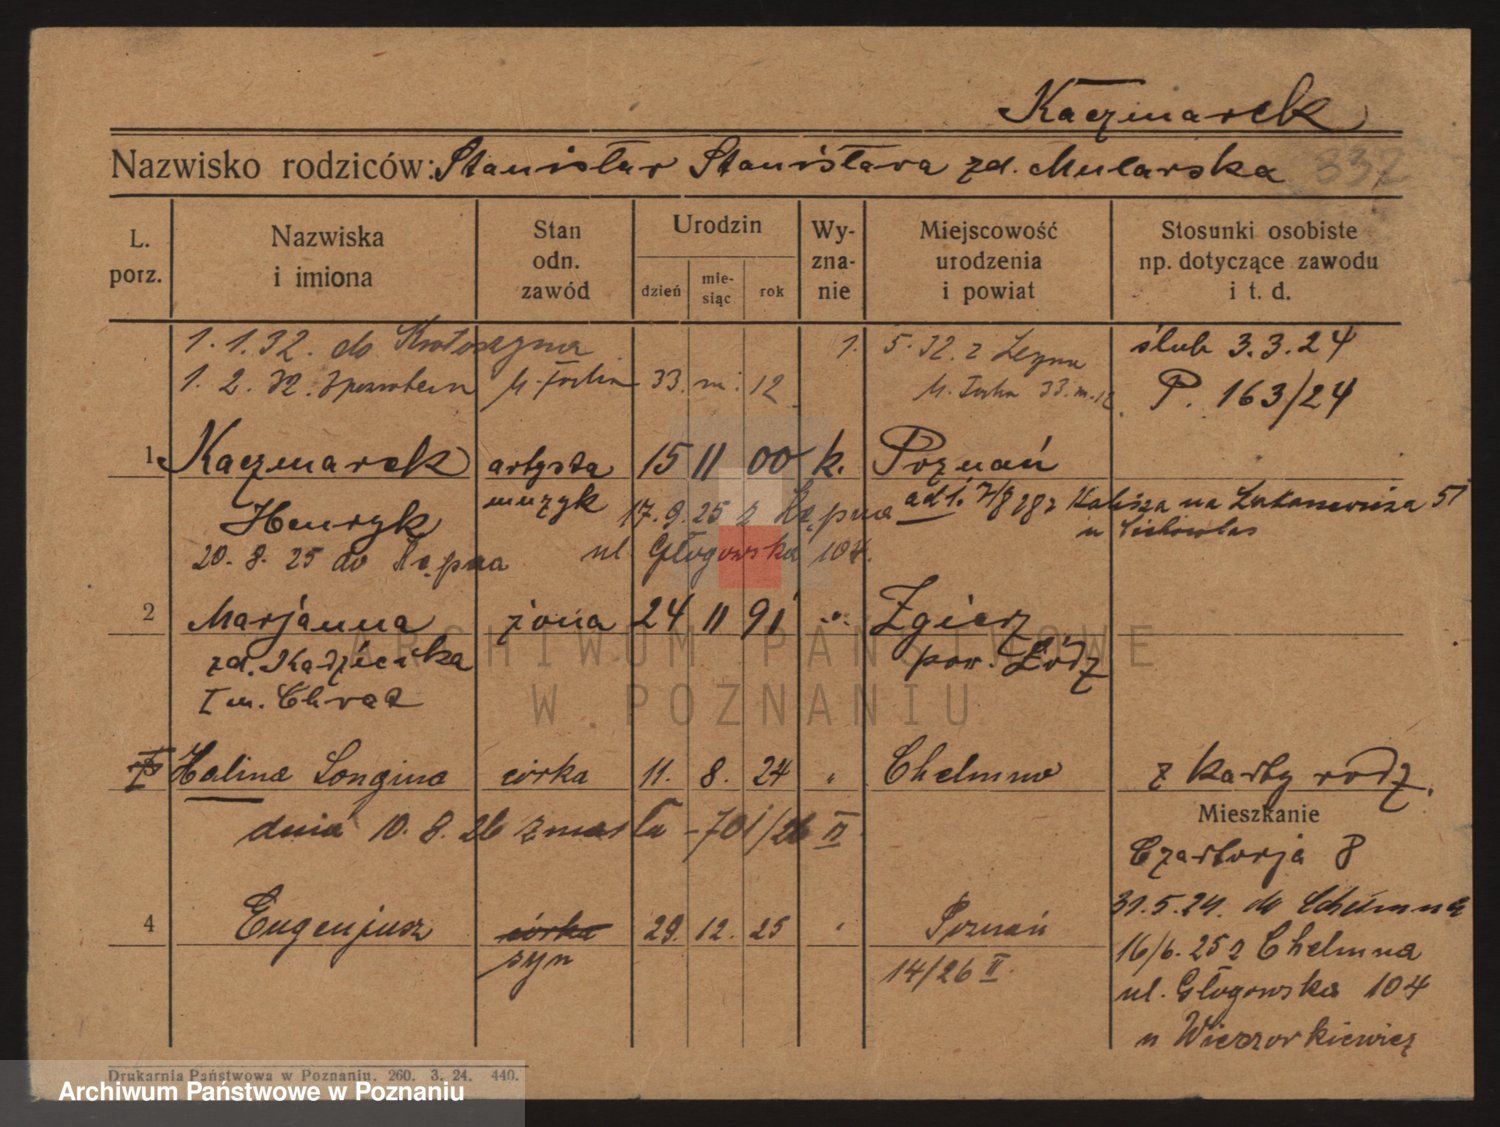 Kaczmarek
Nazwisko rodziców: Stanisław Stanisława zd. Mularska 332
L. porz. Nazwiska i imiona Stan odn. zawód Urodzin dzień mie-siąc rok Wy-zna-nie Miejscowość urodzenia i powiat Stosunki osobiste np. dotyczące zawodu i t. d.
1. 1. 32. do Krotoszyna 1. 5. 32. z ślub 3. 3. 24
1. 2. 32. 33. m. 12 33. m. 12 P. 163/24
1 Kaczmarek artysta 15 11 00 k. Poznań
muzyk
Henryk 17. 9. 25 z Kępna ad 1. 7/8 28 z Kalisza na Łukaszewicza 51
20. 8. 25 do Kępna ul. Głogowska 104.
2 Marjanna żona 24 11 91 „ Zgierz
zd. Kądziecka pow. Łódź
I m. Chrat
Halina Longina córka 11. 8. 24 „ Chełmno z karty rodz.
Mieszkanie
dnia 10. 8. 26 zmarła - 701/26 II
Czartorja 8
31. 5. 24. do Chełmna
4 Eugenjusz córka 29. 12. 25 „ Poznań
syn 14/26 II.
16/6. 25 z Chełmna
ul. Głogowska 104
u Wieczorkiewicz
Drukarnia Państwowa w Poznaniu. 260. 3. 24. 440.
ARCHIWUM PAŃSTWOWE
W POZNANIU
Archiwum Państwowe w Poznaniu